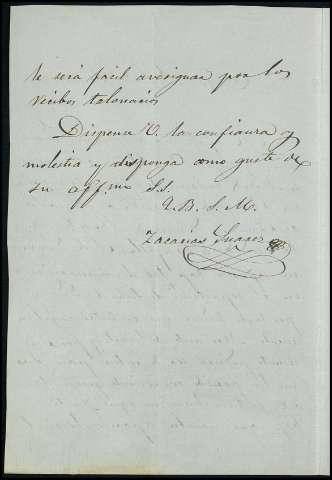 le será fácil averiguar por los
recibos talonarios
Dispense V. la confianza y
molestia y disponga como guste de
su affmo S.S.
Q. B. S. M.
Zacarias Suarez